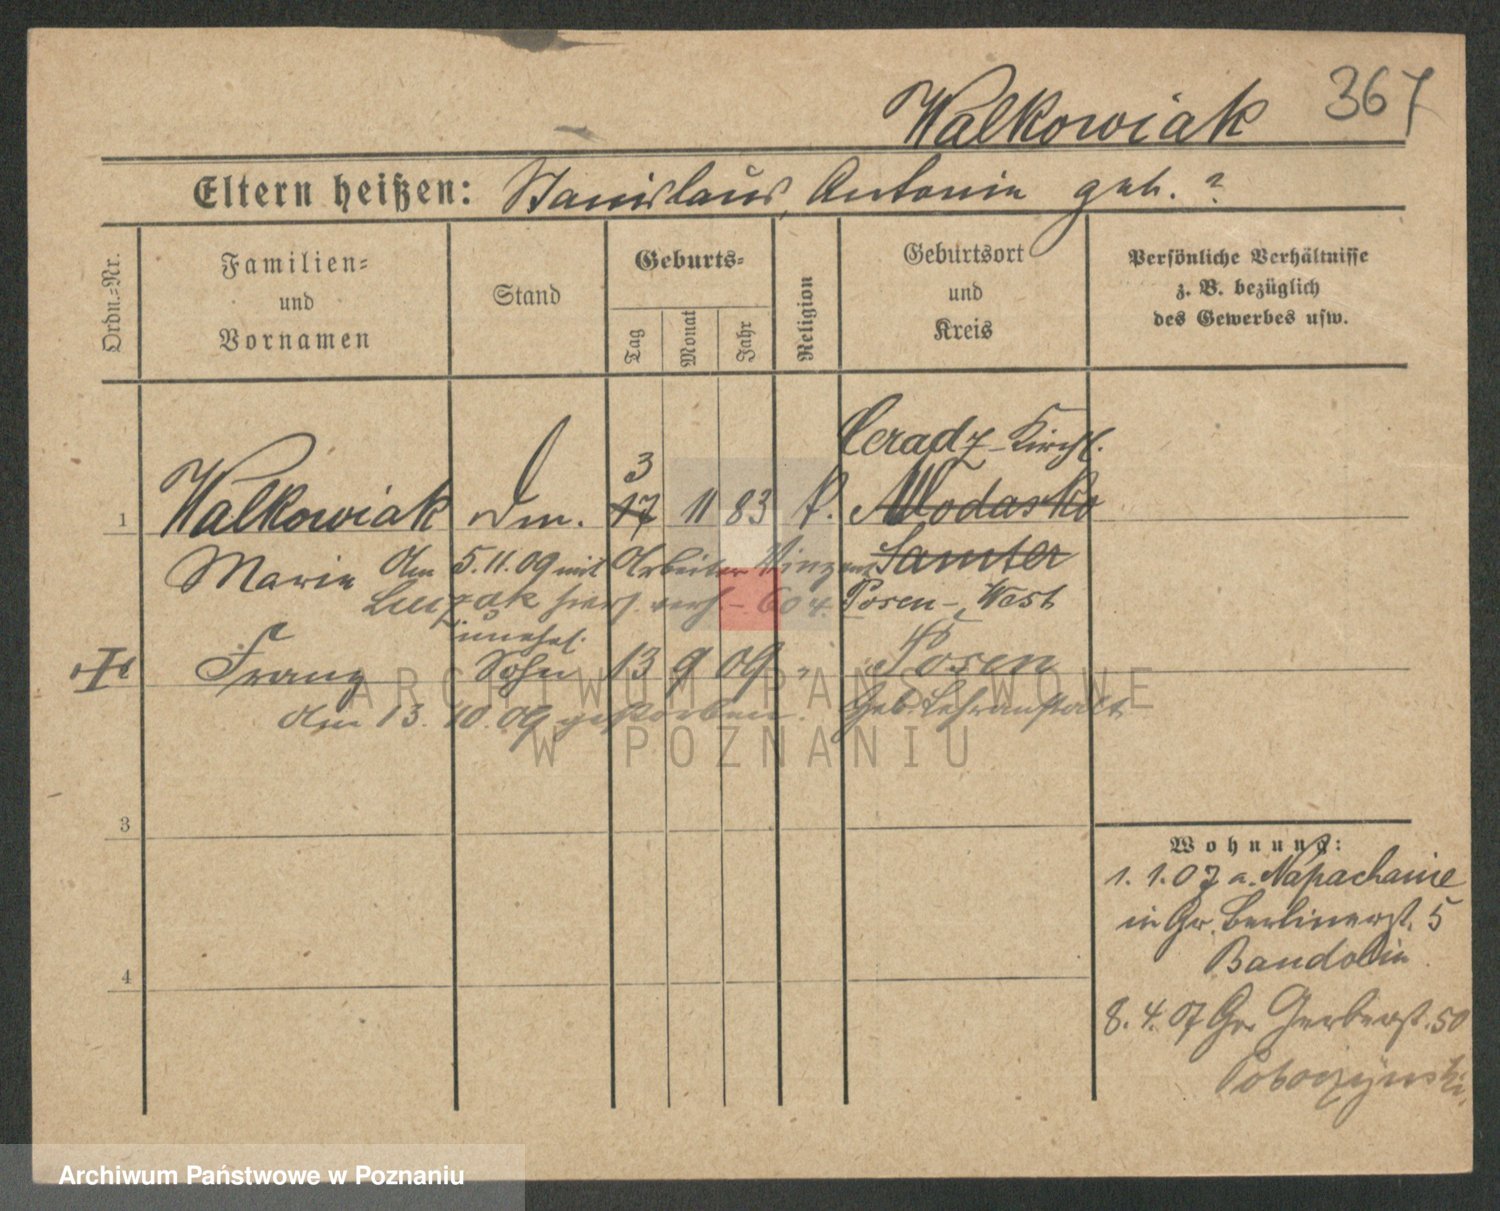 Walkowiak 367
Eltern heißen: Stanislaus, Antonie geb. ?
Ordn.-Nr.
Familien-
und
Vornamen
Stand
Geburts-
Tag
Monat
Jahr
Religion
Geburtsort
und
Kreis
Persönliche Verhältnisse
z. B. bezüglich
des Gewerbes usw.
Ceradz-Kirchl.
3
1 Walkowiak 17 11 83 k.
Marie Am 5.11.09 mit Arbeiter Samter
hier verh. - 604. Posen-West
unehel.
Franz Sohn 13 9 09 " Posen
Am 13. 10. 09 gestorben. Geb. Lehranstalt
3
4
Wohnung:
1. 1. 07 a. Napachanie
in Gr. Berlinerst. 5
8. 4. 07 Gr. Gerberst. 50
ARCHIWUM PAŃSTWOWE
W POZNANIU
Archiwum Państwowe w Poznaniu